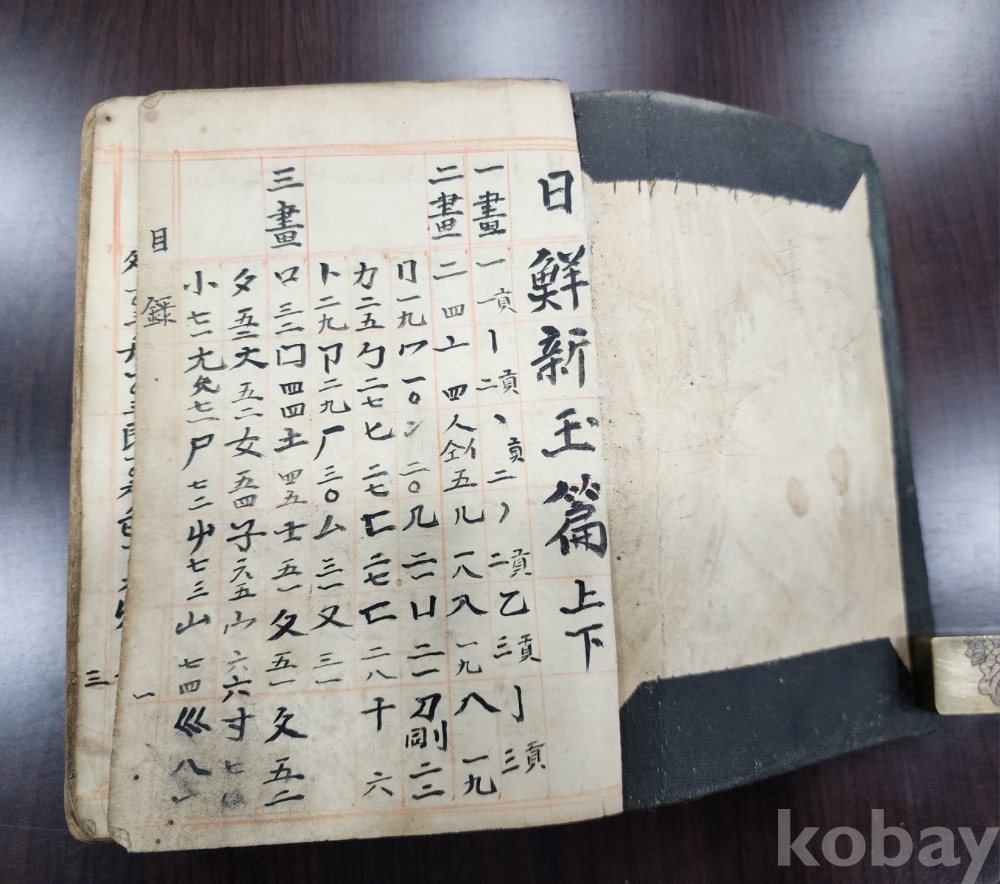 日鮮新玉篇上下
一畫 一 一頁 丨 二頁 丶 二頁 丿 二頁 乙 三頁 亅 三頁
二畫 二 四 亠 四 人 五 儿 一八 入 一九 八 一九
冂 一九 冖 一〇 冫 二〇 几 二一 凵 二一 刀 二二
力 二五 勹 二七 匕 二七 匚 二七 匸 二八 十 六
卜 二九 卩 二九 厂 三〇 厶 三一 又 三一
三畫 口 三二 囗 四四 土 四五 士 五一 夂 五一 夊 五二
夕 五二 大 五二 女 五四 子 六五 宀 六六 寸
小 七一 尢 七一 尸 七二 屮 七三 山 七四 巛 八一
目錄 一
三
kobay